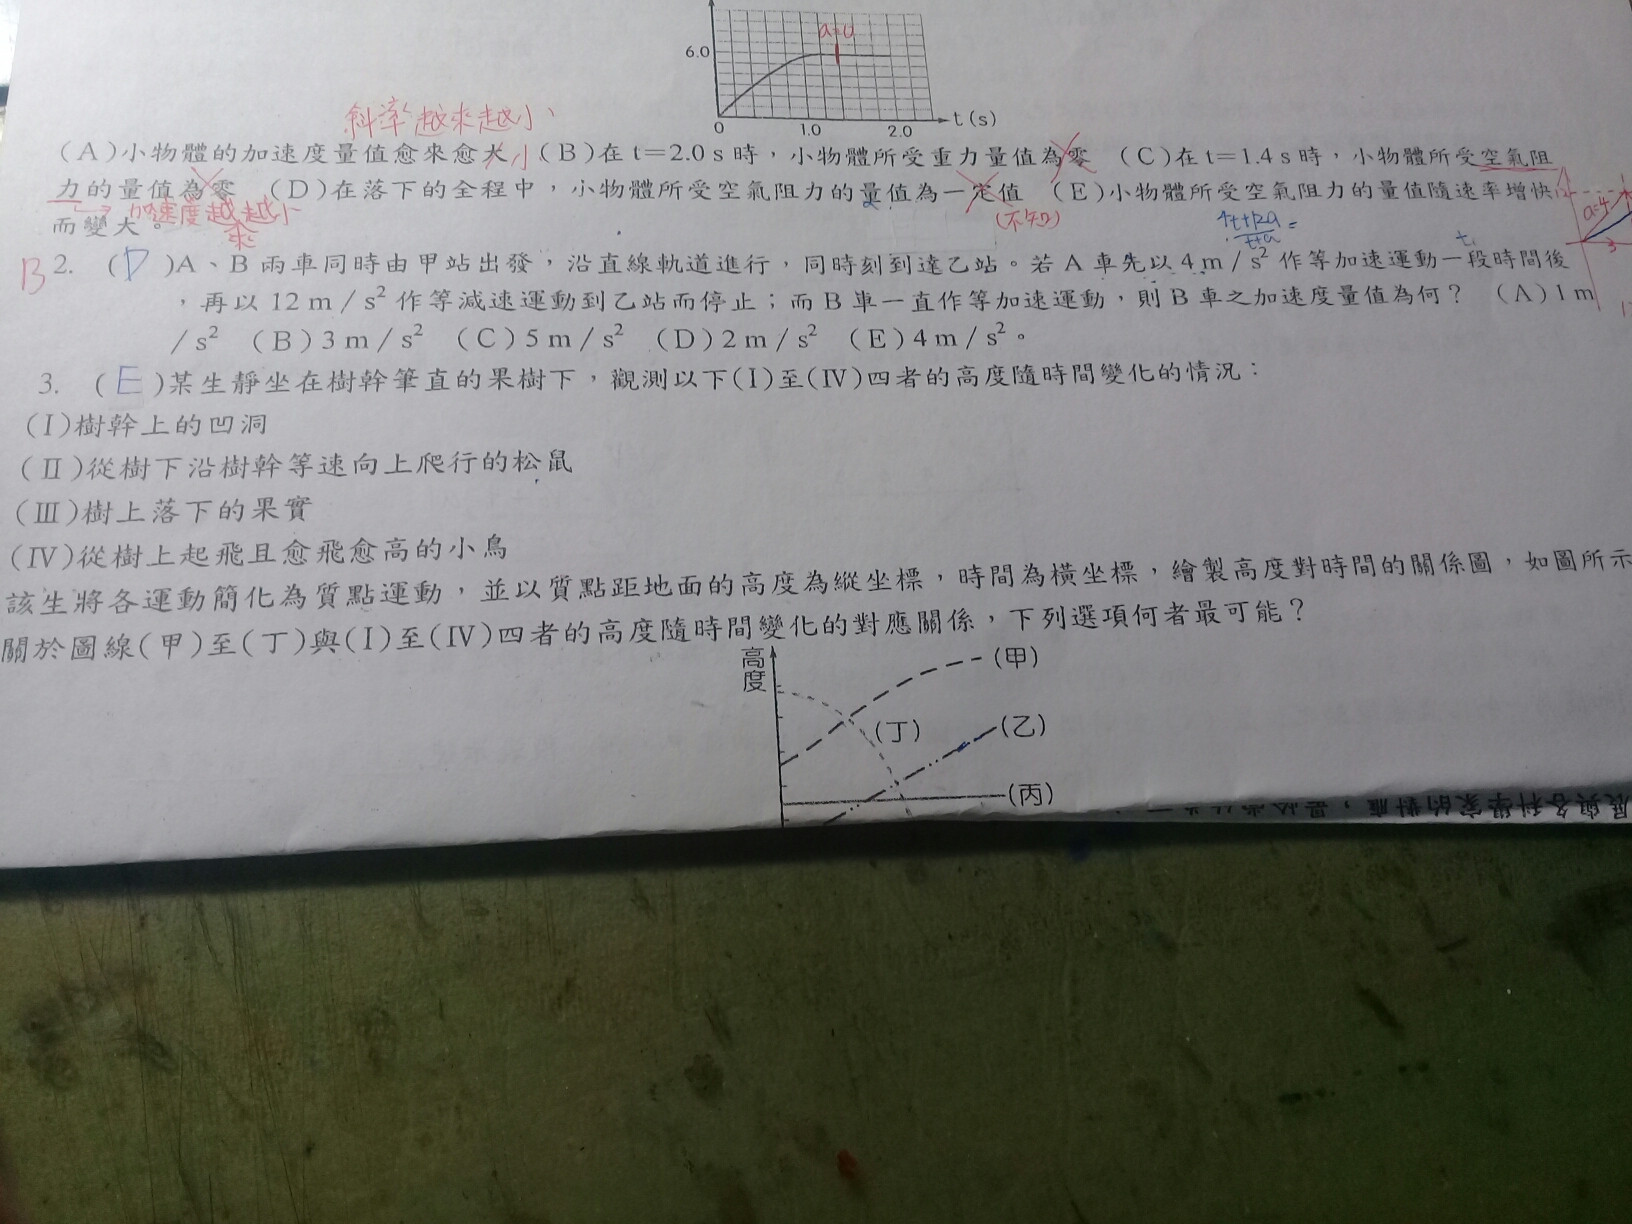 6.0
a=0
0 1.0 2.0 t(s)
斜率越來越小
(A)小物體的加速度量值愈來愈大 小 (B)在t=2.0 s時，小物體所受重力量值為零 (C)在t=1.4 s時，小物體所受空氣阻
力的量值為零 (D)在落下的全程中，小物體所受空氣阻力的量值為一定值 (E)小物體所受空氣阻力的量值隨速率增快
而變大。
加速度越來越小
(不知)
a=4
B 2. (D)A、B兩車同時由甲站出發，沿直線軌道進行，同時刻到達乙站。若A車先以4 m/s² 作等加速運動一段時間後
，再以12 m/s² 作等減速運動到乙站而停止；而B車一直作等加速運動，則B車之加速度量值為何？ (A)1 m
/s² (B)3 m/s² (C)5 m/s² (D)2 m/s² (E)4 m/s²。
3. (E)某生靜坐在樹幹筆直的果樹下，觀測以下(Ⅰ)至(Ⅳ)四者的高度隨時間變化的情況：
(Ⅰ)樹幹上的凹洞
(Ⅱ)從樹下沿樹幹等速向上爬行的松鼠
(Ⅲ)樹上落下的果實
(Ⅳ)從樹上起飛且愈飛愈高的小鳥
該生將各運動簡化為質點運動，並以質點距地面的高度為縱坐標，時間為橫坐標，繪製高度對時間的關係圖，如圖所示
關於圖線(甲)至(丁)與(Ⅰ)至(Ⅳ)四者的高度隨時間變化的對應關係，下列選項何者最可能？
高度
(甲)
(丁)
(乙)
(丙)
展與各科學家的對應，最恰當